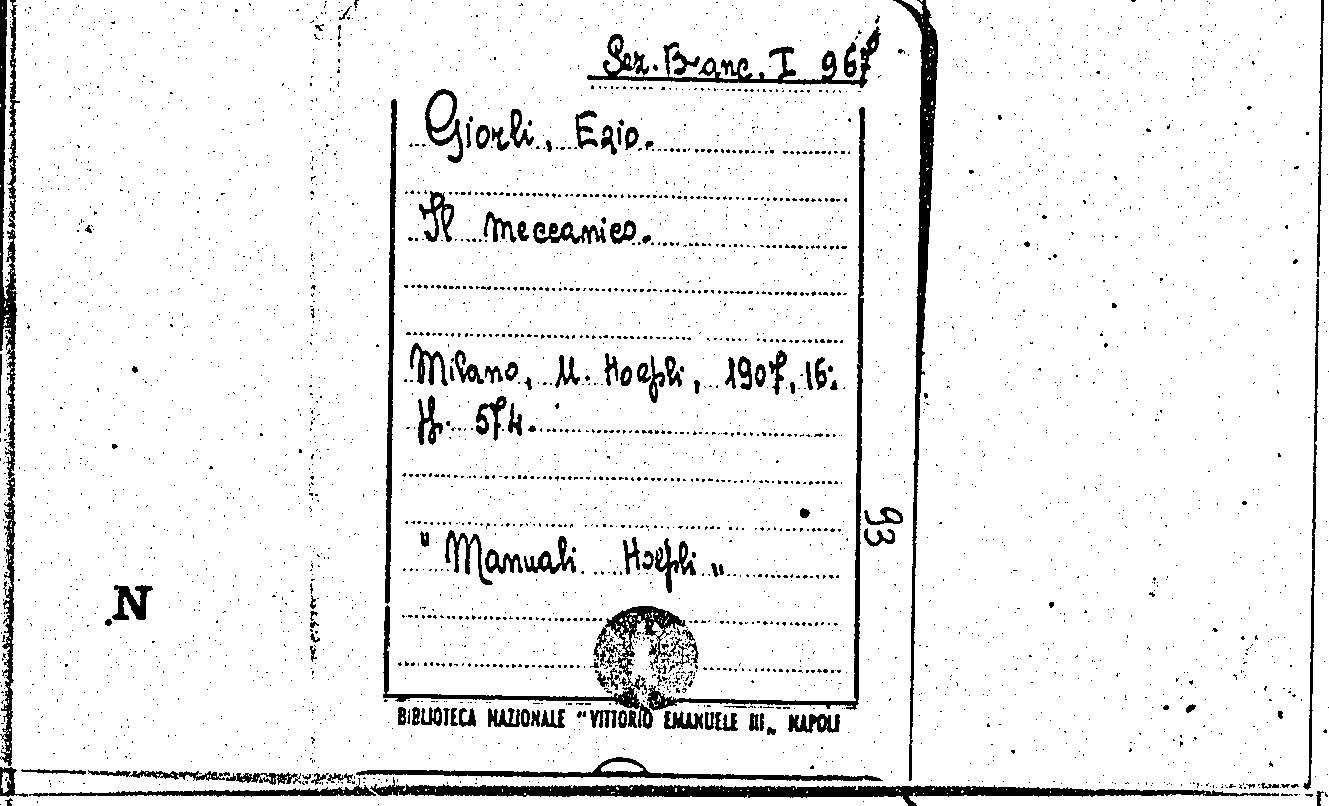 Sez. Branc. I 967
Giorli, Ezio.
Il meccanico.
Milano, U. Hoepli, 1907, 16:
pp. 574.
93
" Manuali Hoepli "
N
BIBLIOTECA NAZIONALE "VITTORIO EMANUELE III„ NAPOLI